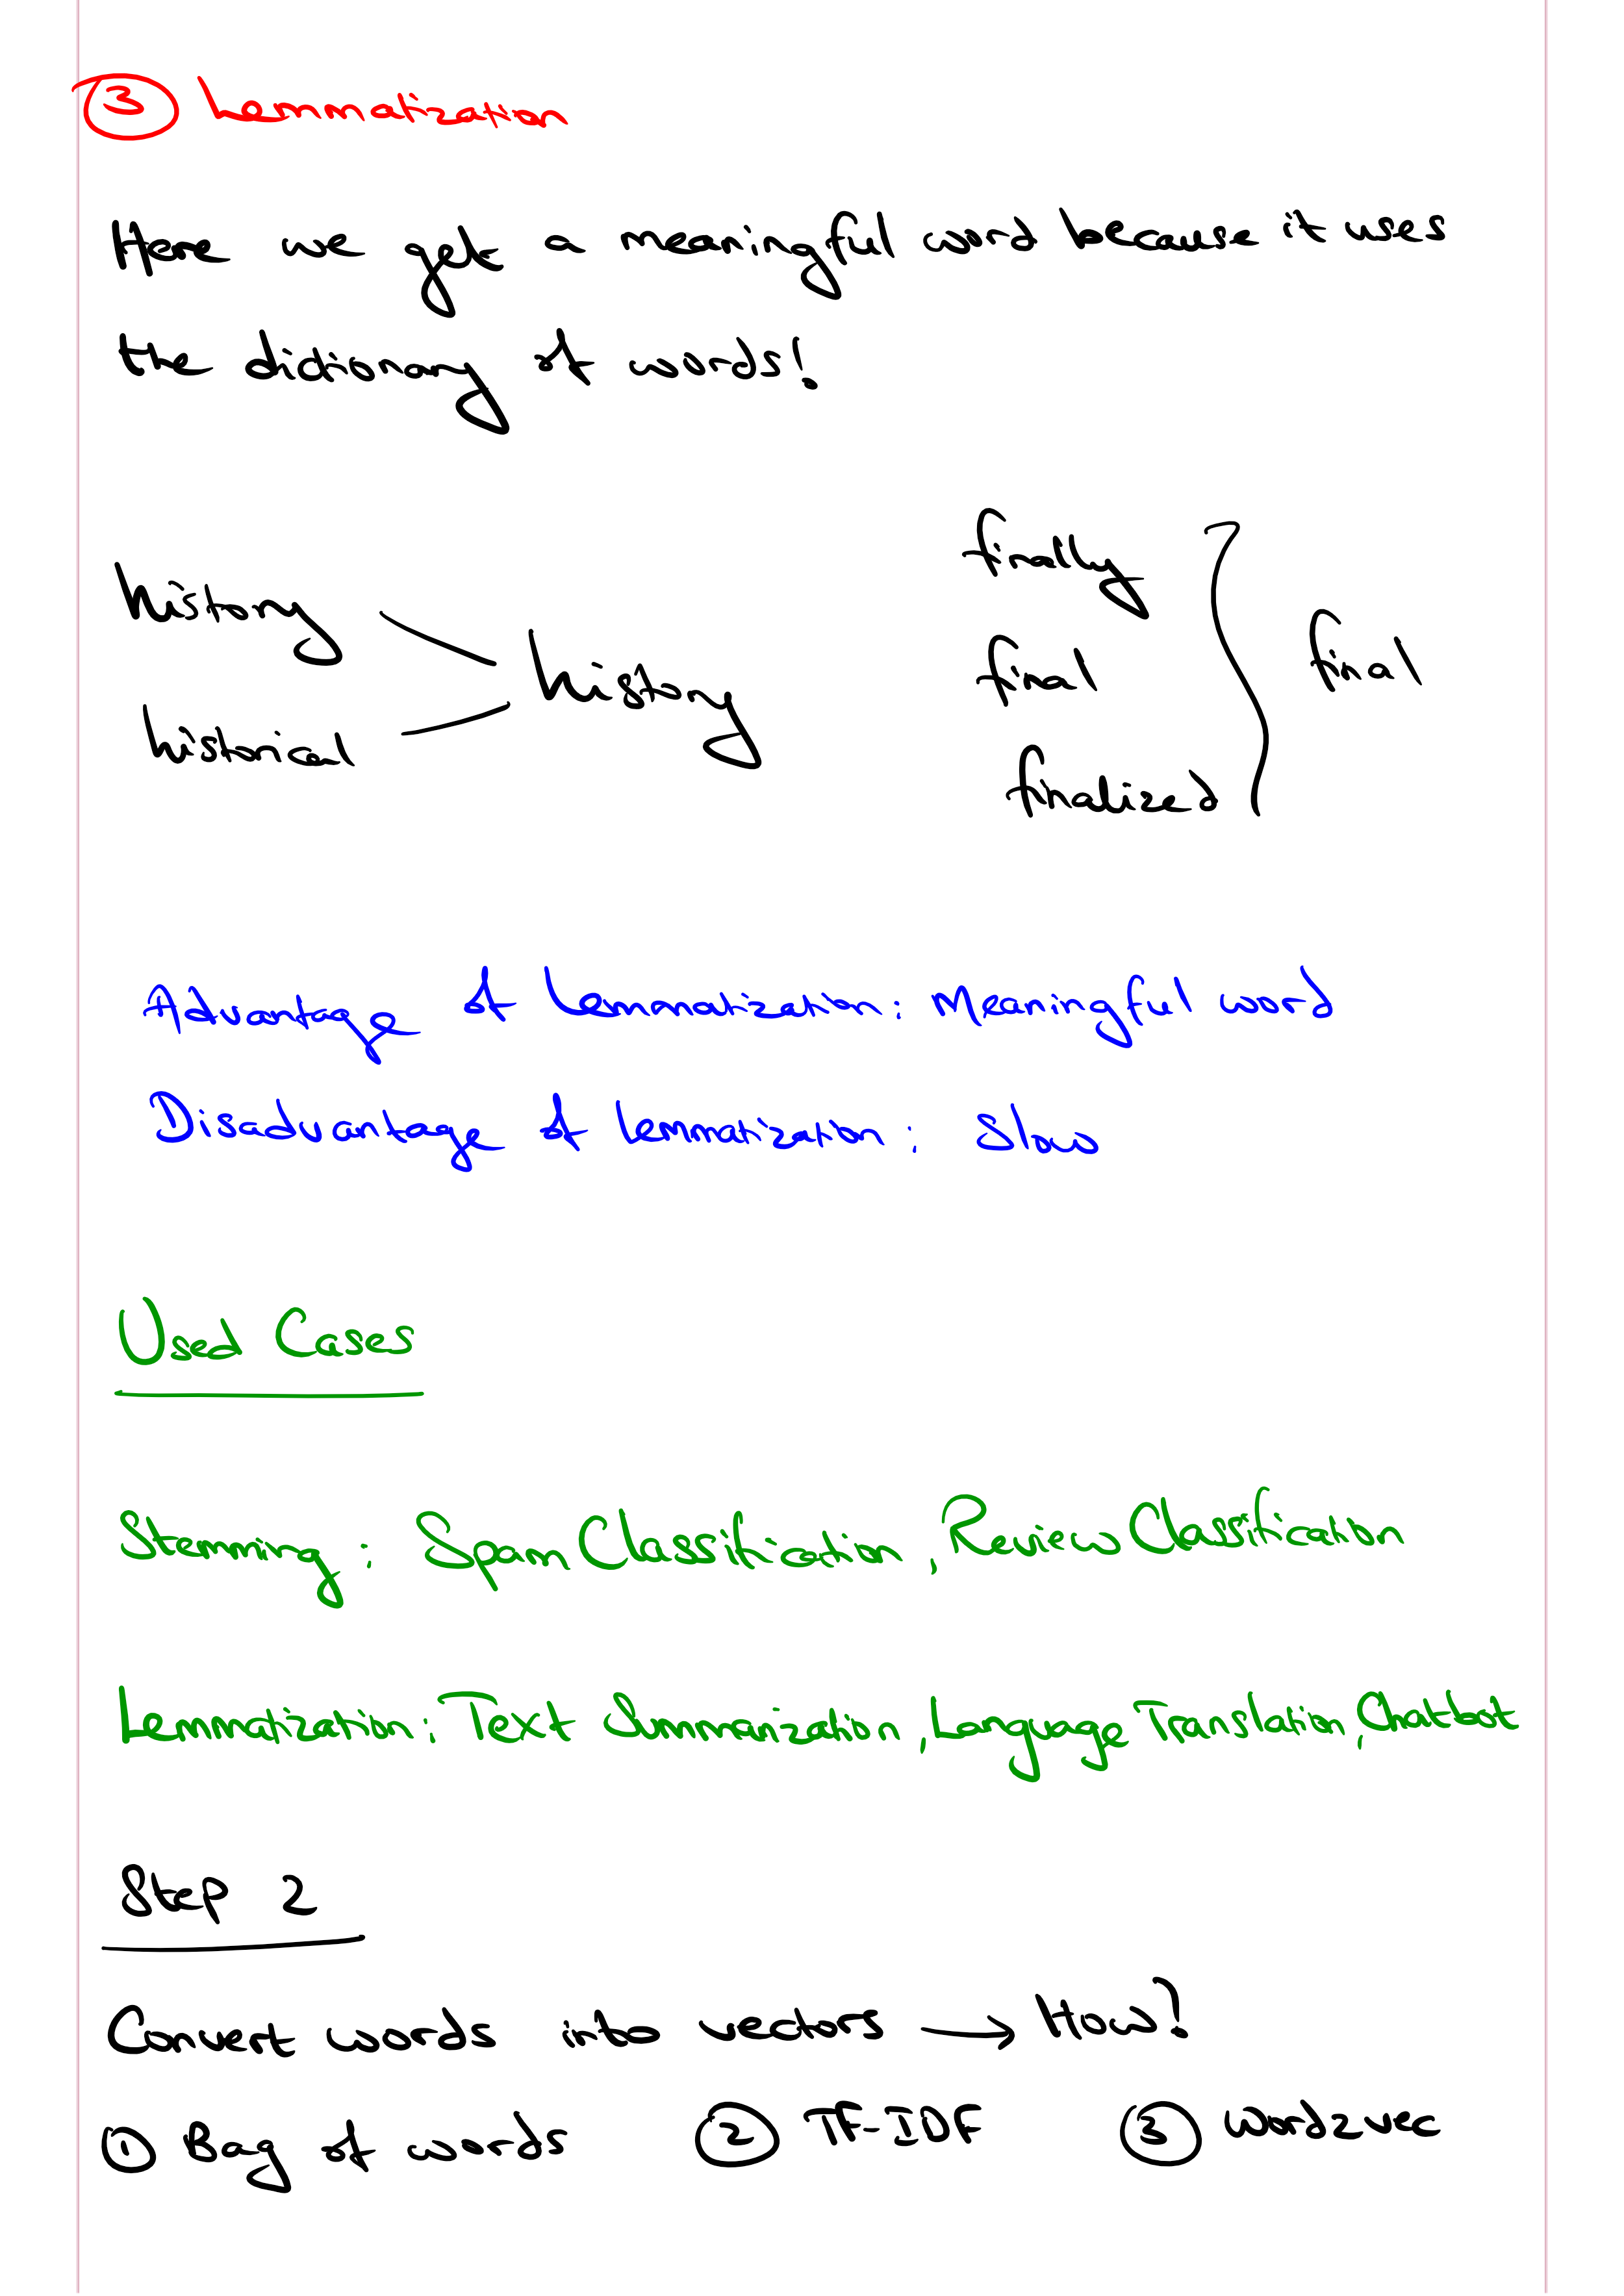 ③ Lemmatization
Here we get a meaningful word because it uses
the dictionary of words!
history
historical
history
finally
final
finalized
final
Advantage of Lemmatization: Meaningful word
Disadvantage of Lemmatization: Slow
Used Cases
Stemming: Spam Classification, Review Classification
Lemmatization: Text Summarization, Language Translation, Chatbot
Step 2
Convert words into vectors → How?
① Bag of words ② TF-IDF ③ Word2vec